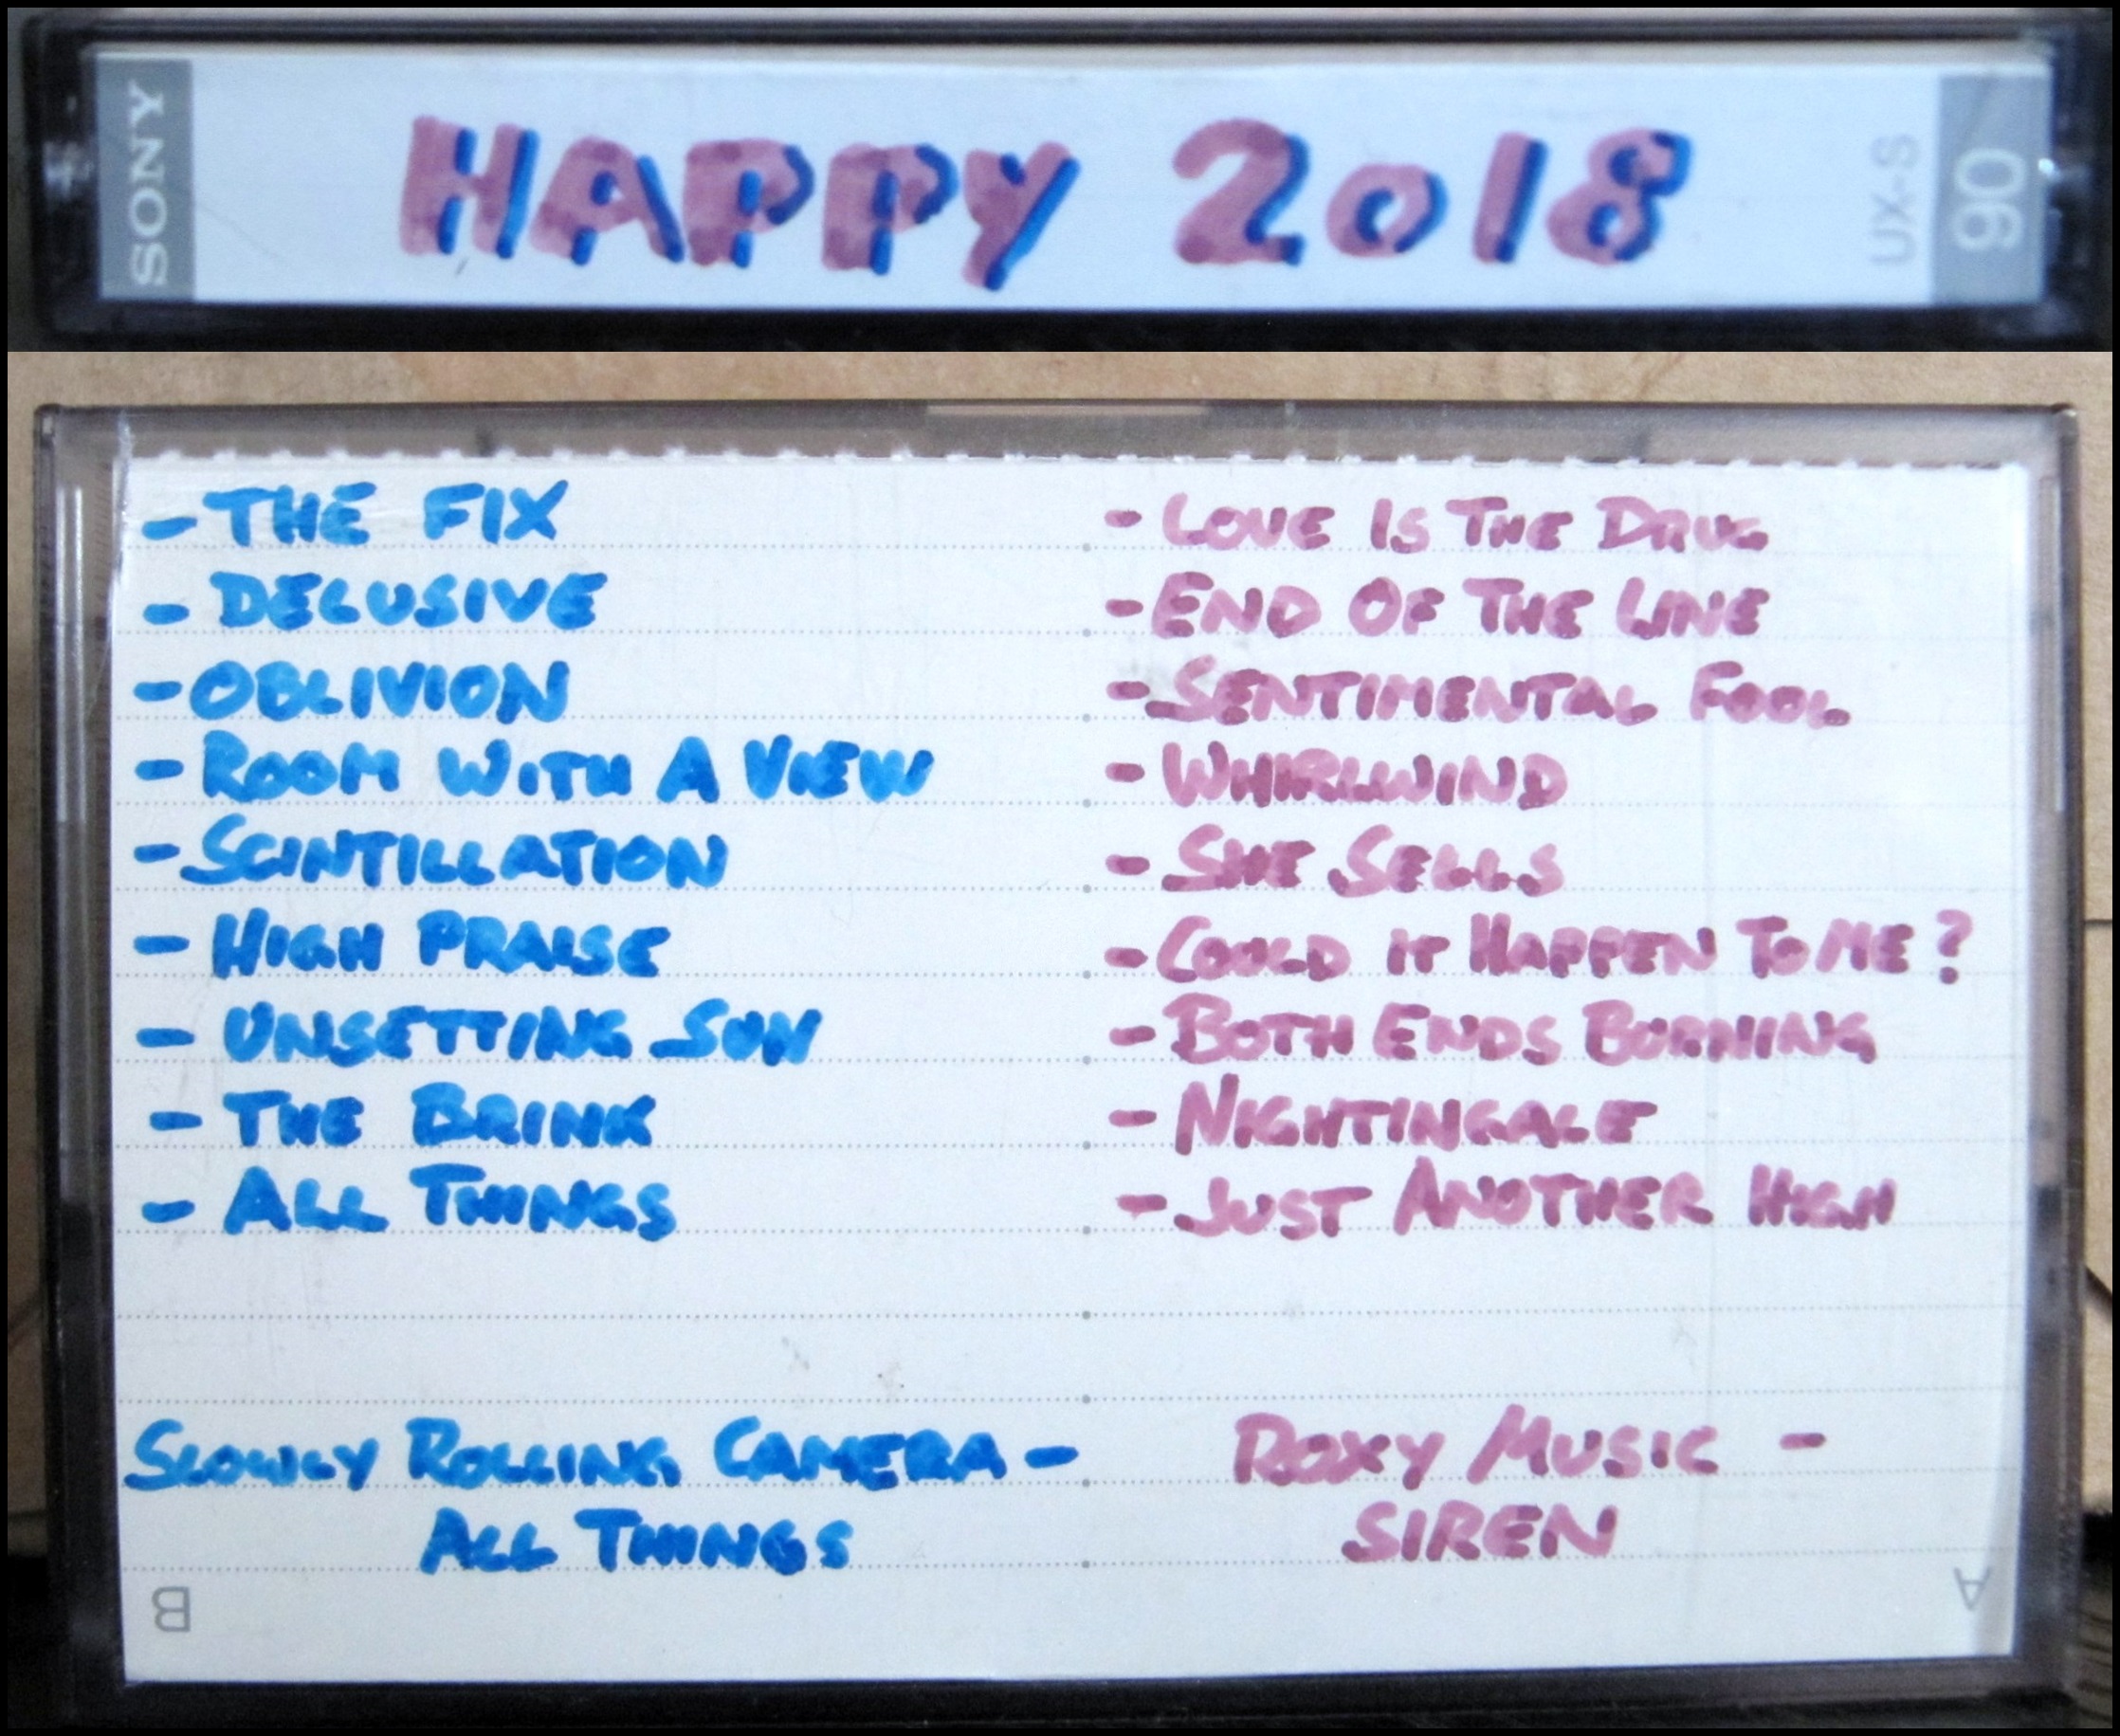 SONY
HAPPY 2018
UX-S
90
- THE FIX
- DELUSIVE
- OBLIVION
- ROOM WITH A VIEW
- SCINTILLATION
- HIGH PRAISE
- UNSETTING SUN
- THE BRINK
- ALL THINGS
SLOWLY ROLLING CAMERA -
ALL THINGS
B
- LOVE IS THE DRUG
- END OF THE LINE
- SENTIMENTAL FOOL
- WHIRLWIND
- SHE SELLS
- COULD IT HAPPEN TO ME?
- BOTH ENDS BURNING
- NIGHTINGALE
- JUST ANOTHER HIGH
ROXY MUSIC -
SIREN
A